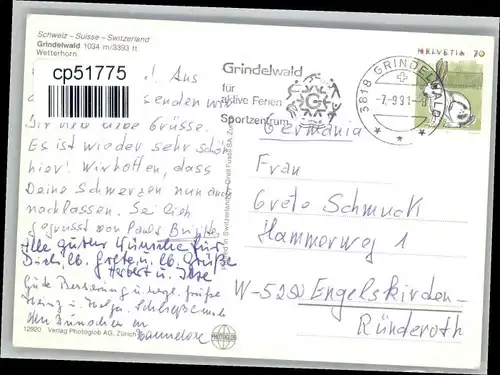 Schweiz – Suisse – Switzerland
Grindelwald 1034 m/3393 ft
Wetterhorn
cp51775
Aus
senden wir
Dir liebe Grüsse.
Es ist wieder sehr schön
hier! Wir hoffen, dass
Deine Schmerzen nun auch
nachlassen. Sei lieb
gegrüsst von Brigitte
Alle guten Wünsche für
Dich, lb. Grete u. lb. Grüße
Herbert u. Ilse
Gute Besserung u. Grüße
Heinz u. Helga.
den Wünschen an
Hannelore
12920 Verlag Photoglob AG, Zürich
PHOTOGLOB
Grindelwald
für
aktive Ferien
Sportzentrum
G
3818 GRINDELWALD
-7.-9.91.-8
HELVETIA 70
Germania
Frau
Grete Schmuck
Hammerweg 1
W-5250 Engelskirchen-
Ründeroth